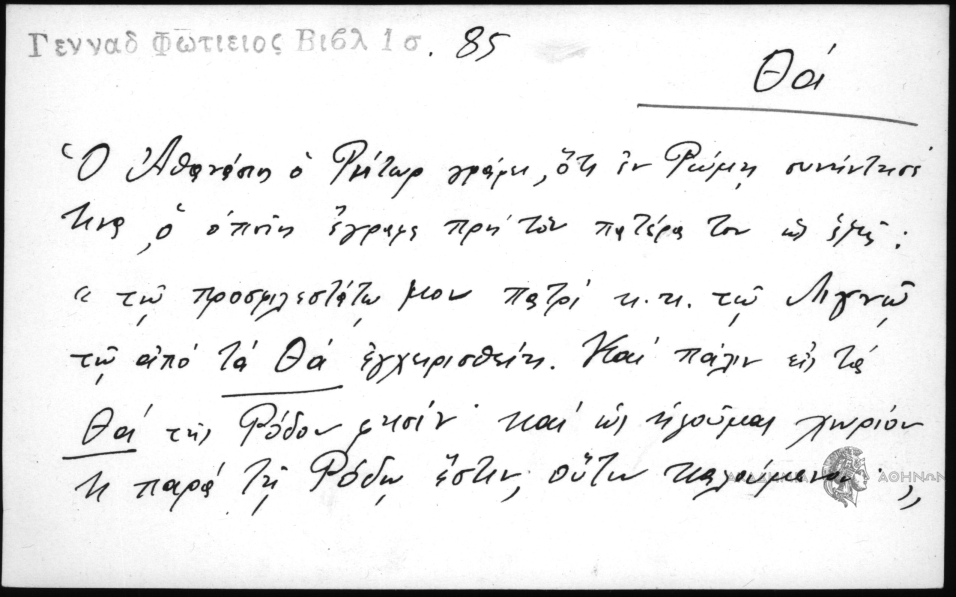 Γενναδ Φωτιειος Βιβλ 1 σ. 85
Θά
Ὁ Ἀθανάσιος ὁ Ῥήτωρ γράφει, ὅτι ἐν Ῥώμῃ συνήντησέ
τινα, ὁ ὁποῖος ἔγραφε πρὸς τὸν πατέρα του ὡς ἑξῆς:
« τῷ προσφιλεστάτῳ μου πατρὶ κ.κ. τῷ Λιγνῷ
τῷ ἀπὸ τὰ Θά ἐγχειρισθείη. Καὶ πάλιν εἰς τὰ
Θά τῆς Ῥόδου φησίν· καὶ ὡς ἡγοῦμαι χωρίον
τι παρὰ τῇ Ῥόδῳ ἔστιν, οὕτω καλούμενον·»
ΑΚΑΔΗΜΙΑ ΑΘΗΝΩΝ